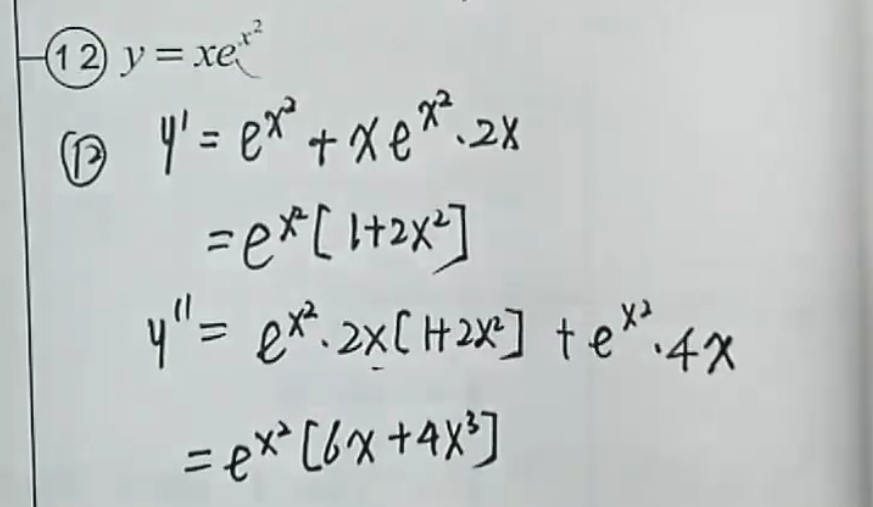 ⑫ y = xe^{x^2}
⑫ y' = e^{x^2} + xe^{x^2}·2x
= e^{x^2}[1+2x^2]
y'' = e^{x^2}·2x[1+2x^2] + e^{x^2}·4x
= e^{x^2}[6x+4x^3]